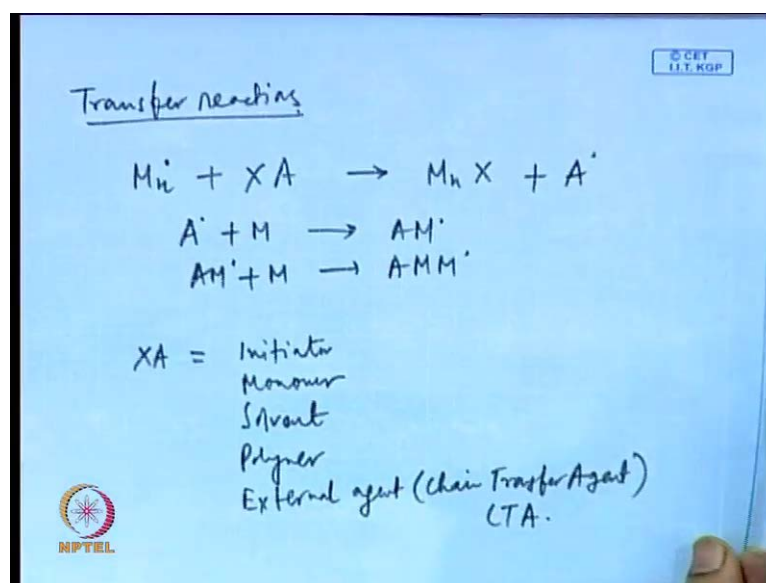 © CET
I.I.T. KGP
Transfer reactions
Mn• + XA → MnX + A•
A• + M → AM•
AM• + M → AMM•
XA = Initiator
Monomer
Solvent
Polymer
External agent (Chain Transfer Agent)
CTA.
NPTEL